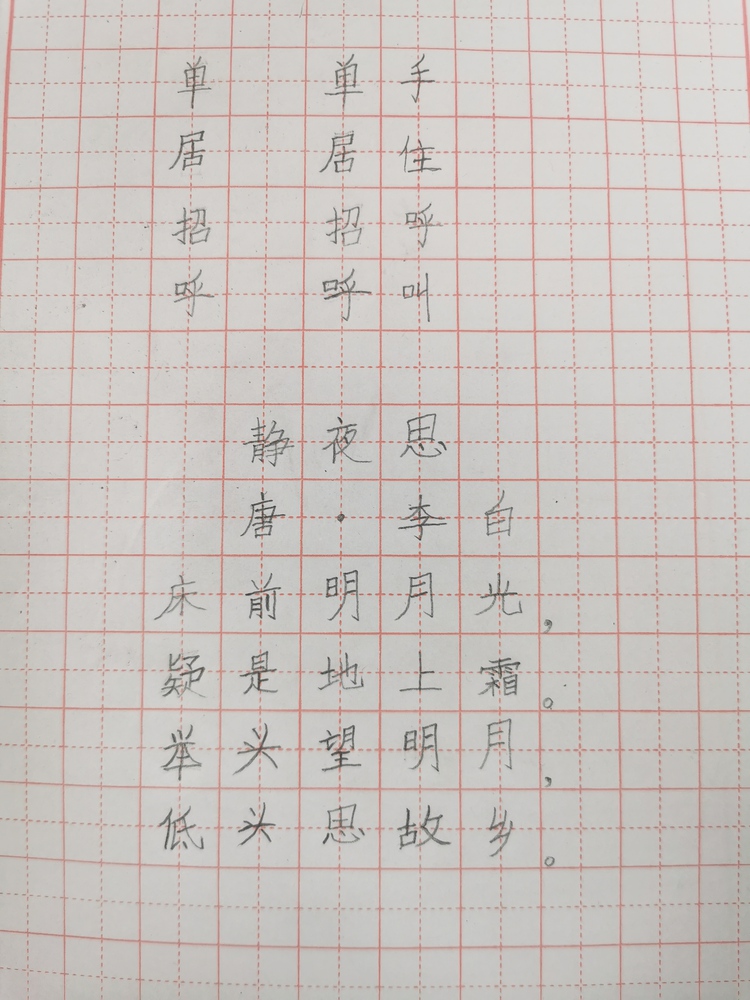 单 单手
居 居住
招 招呼
呼 呼叫
静夜思
唐·李白
床前明月光，
疑是地上霜。
举头望明月，
低头思故乡。